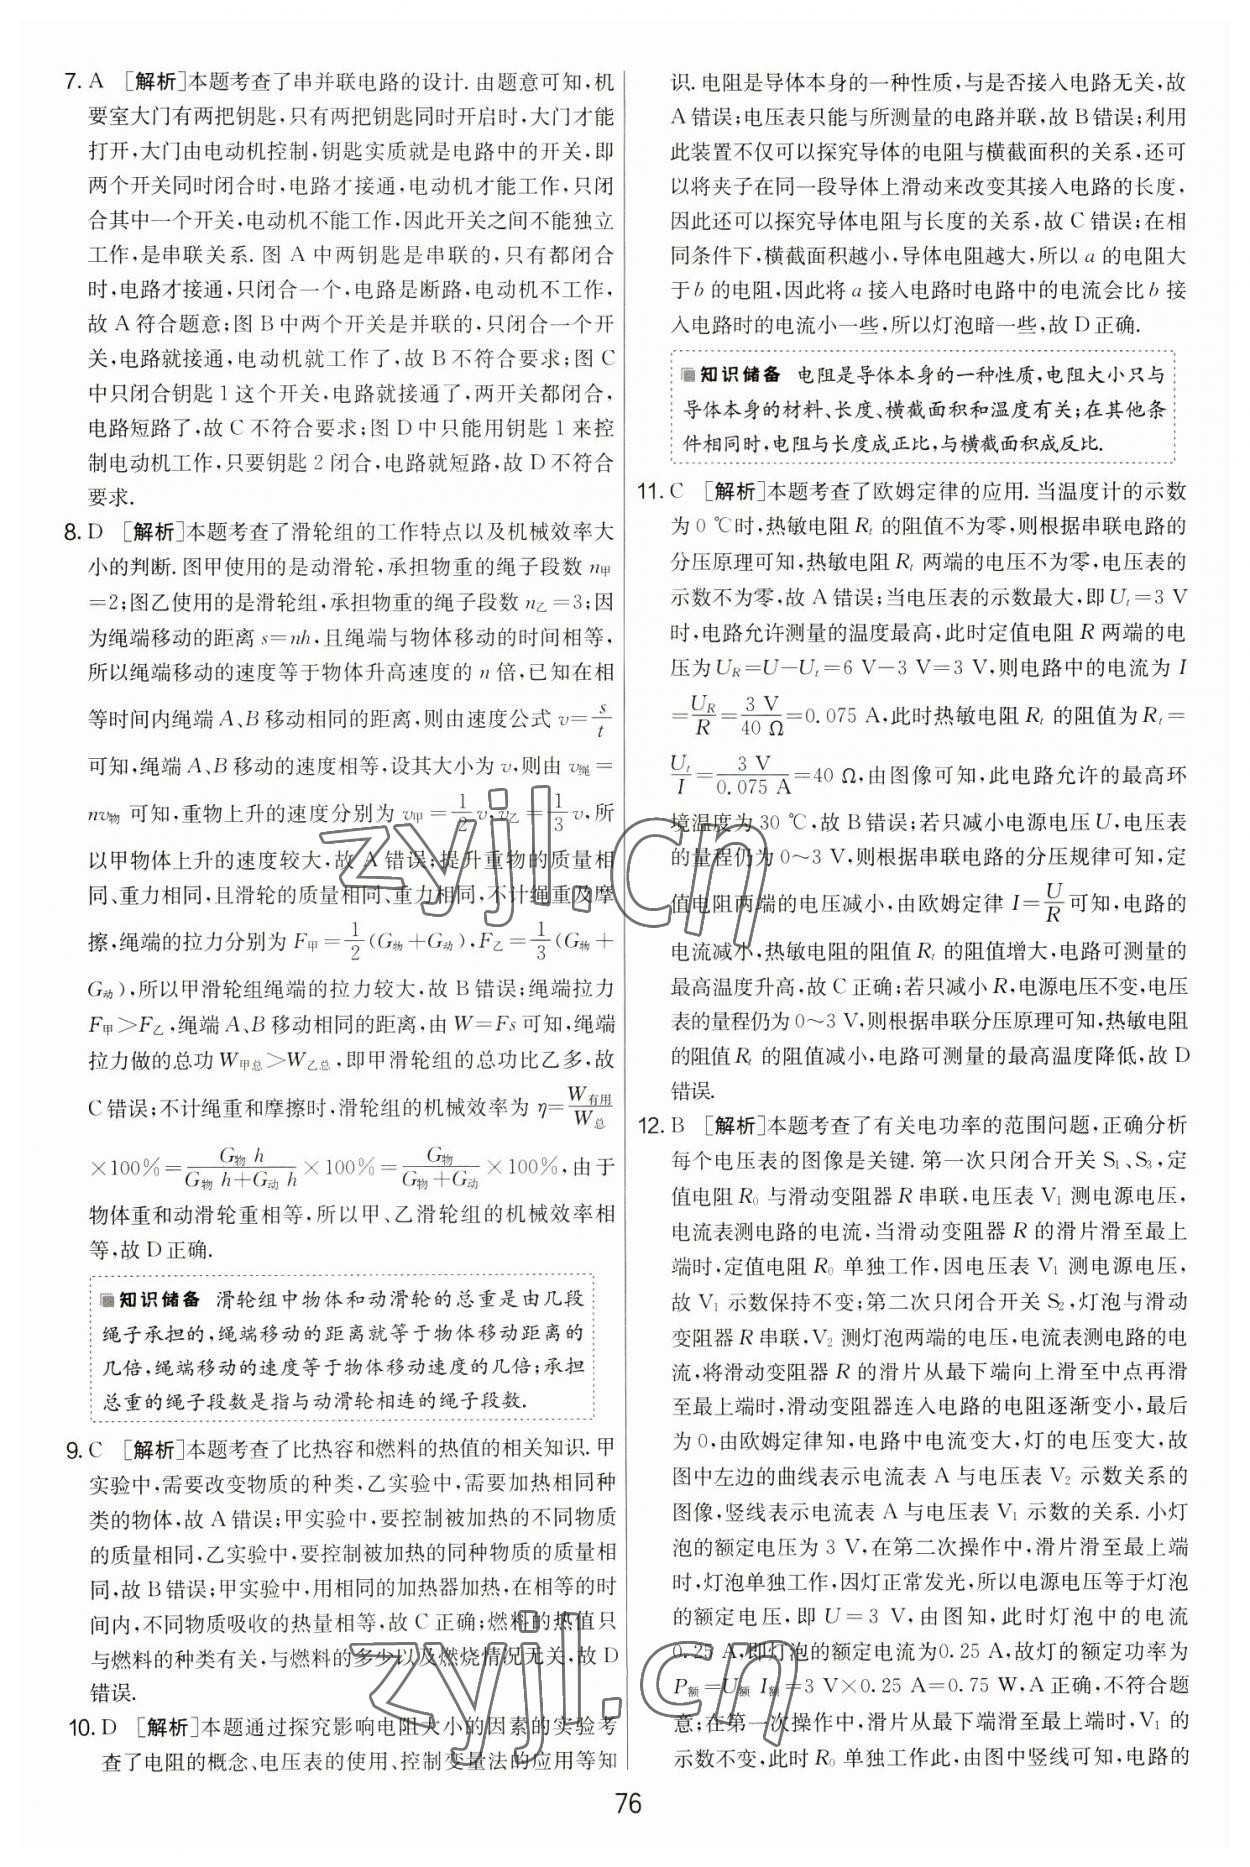 7. A [解析]本题考查了串并联电路的设计. 由题意可知,机
要室大门有两把钥匙,只有两把钥匙同时开启时,大门才能
打开,大门由电动机控制,钥匙实质就是电路中的开关,即
两个开关同时闭合时,电路才接通,电动机才能工作,只闭
合其中一个开关,电动机不能工作,因此开关之间不能独立
工作,是串联关系. 图 A 中两钥匙是串联的,只有都闭合
时,电路才接通,只闭合一个,电路是断路,电动机不工作,
故 A 符合题意;图 B 中两个开关是并联的,只闭合一个开
关,电路就接通,电动机就工作了,故 B 不符合要求;图 C
中只闭合钥匙 1 这个开关,电路就接通了,两开关都闭合,
电路短路了,故 C 不符合要求;图 D 中只能用钥匙 1 来控
制电动机工作,只要钥匙 2 闭合,电路就短路,故 D 不符合
要求.
8. D [解析]本题考查了滑轮组的工作特点以及机械效率大
小的判断. 图甲使用的是动滑轮,承担物重的绳子段数 n甲
=2;图乙使用的是滑轮组,承担物重的绳子段数 n乙=3;因
为绳端移动的距离 s=nh,且绳端与物体移动的时间相等,
所以绳端移动的速度等于物体升高速度的 n 倍,已知在相
等时间内绳端 A、B 移动相同的距离,则由速度公式 v=s/t
可知,绳端 A、B 移动的速度相等,设其大小为 v,则由 v绳=
nv物 可知,重物上升的速度分别为 v甲=1/2 v,v乙=1/3 v,所
以甲物体上升的速度较大,故 A 错误;提升重物的质量相
同、重力相同,且滑轮的质量相同、重力相同,不计绳重及摩
擦,绳端的拉力分别为 F甲=1/2(G物+G动),F乙=1/3(G物+
G动),所以甲滑轮组绳端的拉力较大,故 B 错误;绳端拉力
F甲>F乙,绳端 A、B 移动相同的距离,由 W=Fs 可知,绳端
拉力做的总功 W甲总>W乙总,即甲滑轮组的总功比乙多,故
C 错误;不计绳重和摩擦时,滑轮组的机械效率为 η=W有用/W总
×100%=G物 h/(G物 h+G动 h)×100%=G物/(G物+G动)×100%,由于
物体重和动滑轮重相等,所以甲、乙滑轮组的机械效率相
等,故 D 正确.
知识储备 滑轮组中物体和动滑轮的总重是由几段
绳子承担的,绳端移动的距离就等于物体移动距离的
几倍,绳端移动的速度等于物体移动速度的几倍;承担
总重的绳子段数是指与动滑轮相连的绳子段数.
9. C [解析]本题考查了比热容和燃料的热值的相关知识. 甲
实验中,需要改变物质的种类,乙实验中,需要加热相同种
类的物体,故 A 错误;甲实验中,要控制被加热的不同物质
的质量相同,乙实验中,要控制被加热的同种物质的质量相
同,故 B 错误;甲实验中,用相同的加热器加热,在相等的时
间内,不同物质吸收的热量相等,故 C 正确;燃料的热值只
与燃料的种类有关,与燃料的多少以及燃烧情况无关,故 D
错误.
10. D [解析]本题通过探究影响电阻大小的因素的实验考
查了电阻的概念、电压表的使用、控制变量法的应用等知
识. 电阻是导体本身的一种性质,与是否接入电路无关,故
A 错误;电压表只能与所测量的电路并联,故 B 错误;利用
此装置不仅可以探究导体的电阻与横截面积的关系,还可
以将夹子在同一段导体上滑动来改变其接入电路的长度,
因此还可以探究导体电阻与长度的关系,故 C 错误;在相
同条件下,横截面积越小,导体电阻越大,所以 a 的电阻大
于 b 的电阻,因此将 a 接入电路时电路中的电流会比 b 接
入电路时的电流小一些,所以灯泡暗一些,故 D 正确.
知识储备 电阻是导体本身的一种性质,电阻大小只与
导体本身的材料、长度、横截面积和温度有关;在其他条
件相同时,电阻与长度成正比,与横截面积成反比.
11. C [解析]本题考查了欧姆定律的应用. 当温度计的示数
为 0 ℃时,热敏电阻 Rt 的阻值不为零,则根据串联电路的
分压原理可知,热敏电阻 Rt 两端的电压不为零,电压表的
示数不为零,故 A 错误;当电压表的示数最大,即 Ut=3 V
时,电路允许测量的温度最高,此时定值电阻 R 两端的电
压为 UR=U-Ut=6 V-3 V=3 V,则电路中的电流为 I
=UR/R=3 V/40 Ω=0.075 A,此时热敏电阻 Rt 的阻值为 Rt=
Ut/I=3 V/0.075 A=40 Ω,由图像可知,此电路允许的最高环
境温度为 30 ℃,故 B 错误;若只减小电源电压 U,电压表
的量程仍为 0～3 V,则根据串联电路的分压规律可知,定
值电阻两端的电压减小,由欧姆定律 I=U/R可知,电路的
电流减小,热敏电阻的阻值 Rt 的阻值增大,电路可测量的
最高温度升高,故 C 正确;若只减小 R,电源电压不变,电压
表的量程仍为 0～3 V,则根据串联分压原理可知,热敏电阻
的阻值 Rt 的阻值减小,电路可测量的最高温度降低,故 D
错误.
12. B [解析]本题考查了有关电功率的范围问题,正确分析
每个电压表的图像是关键. 第一次只闭合开关 S1、S3,定
值电阻 R0 与滑动变阻器 R 串联,电压表 V1 测电源电压,
电流表测电路的电流,当滑动变阻器 R 的滑片滑至最上
端时,定值电阻 R0 单独工作,因电压表 V1 测电源电压,
故 V1 示数保持不变;第二次只闭合开关 S2,灯泡与滑动
变阻器 R 串联,V2 测灯泡两端的电压,电流表测电路的电
流,将滑动变阻器 R 的滑片从最下端向上滑至中点再滑
至最上端时,滑动变阻器连入电路的电阻逐渐变小,最后
为 0,由欧姆定律知,电路中电流变大,灯的电压变大,故
图中左边的曲线表示电流表 A 与电压表 V2 示数关系的
图像,竖线表示电流表 A 与电压表 V1 示数的关系. 小灯
泡的额定电压为 3 V,在第二次操作中,滑片滑至最上端
时,灯泡单独工作,因灯正常发光,所以电源电压等于灯泡
的额定电压,即 U=3 V,由图知,此时灯泡中的电流
0.25 A,即灯泡的额定电流为0.25 A,故灯的额定功率为
P额=U额 I额=3 V×0.25 A=0.75 W,A 正确,不符合题
意;在第一次操作中,滑片从最下端滑至最上端时,V1 的
示数不变,此时 R0 单独工作此,由图中竖线可知,电路的
76
zyjl.cn
zyjl.cn